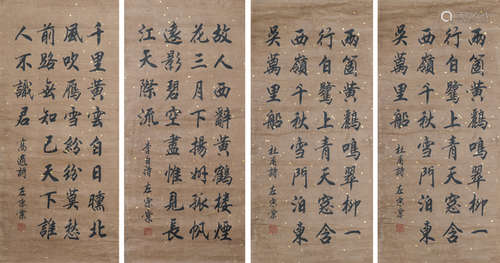 兩箇黃鸝鳴翠柳一
行白鷺上青天窓含
西嶺千秋雪門泊東
吳萬里船
杜甫詩 左宗棠
兩箇黃鸝鳴翠柳一
行白鷺上青天窓含
西嶺千秋雪門泊東
吳萬里船
杜甫詩 左宗棠
故人西辭黃鶴樓煙
花三月下揚州孤帆
遠影碧空盡惟見長
江天際流
李白詩 左宗棠
千里黃雲白日曛北
風吹雁雪紛紛莫愁
前路無知己天下誰
人不識君
高適詩 左宗棠